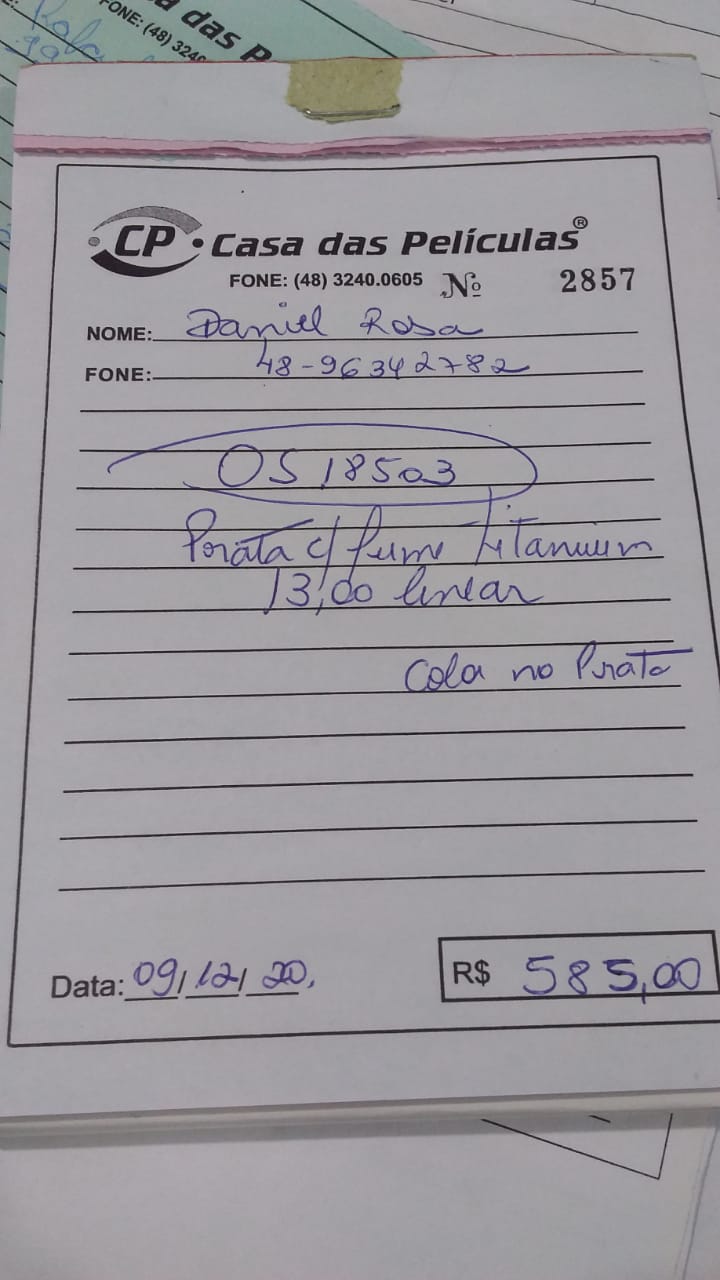 a das P
FONE: (48) 324
CP Casa das Películas®
FONE: (48) 3240.0605 Nº 2857
NOME: Daniel Rosa
FONE: 48-96342782
OS 18503
Prata c/ fume titanium
13,00 linear
Cola no Prata
Data: 09/12/20.
R$ 585,00